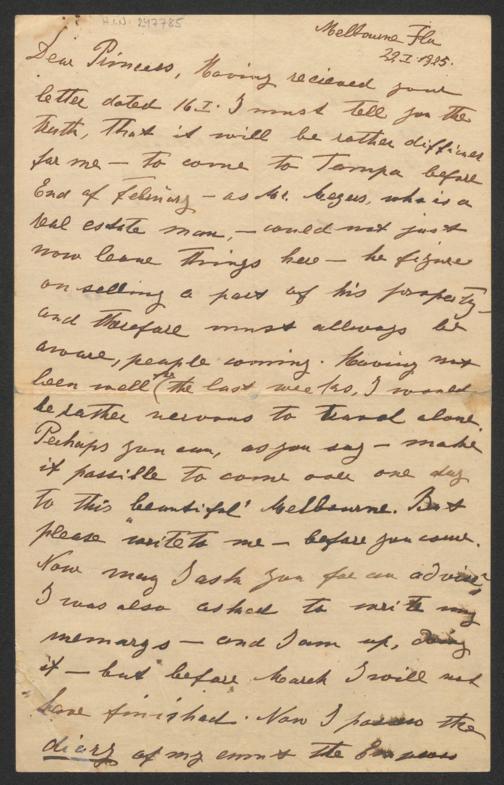 H.N. 297785
Melbourne Fla
22.I.1925.
Dear Princess, Having recieved your
letter dated 16.I. I must tell you the
truth, that it will be rather difficult
for me — to come to Tampa before
End of february — as Mr. who is a
real estate man, — could not just
now leave things here — he figure
on selling a part of his property —
and therefore must allways be
aware, people coming. Having not
been well the last weeks, I would
be rather nervous to travel alone.
Perhaps you can, as you say — make
it possible to come over one day
to this beautiful Melbourne. But
please write to me — before you come.
Now may I ask you for an advice,
I was also asked to write my
memarys — and I am up, doing
it — but before March I will not
have finished. Now I possess the
diary of my aunt the Empress